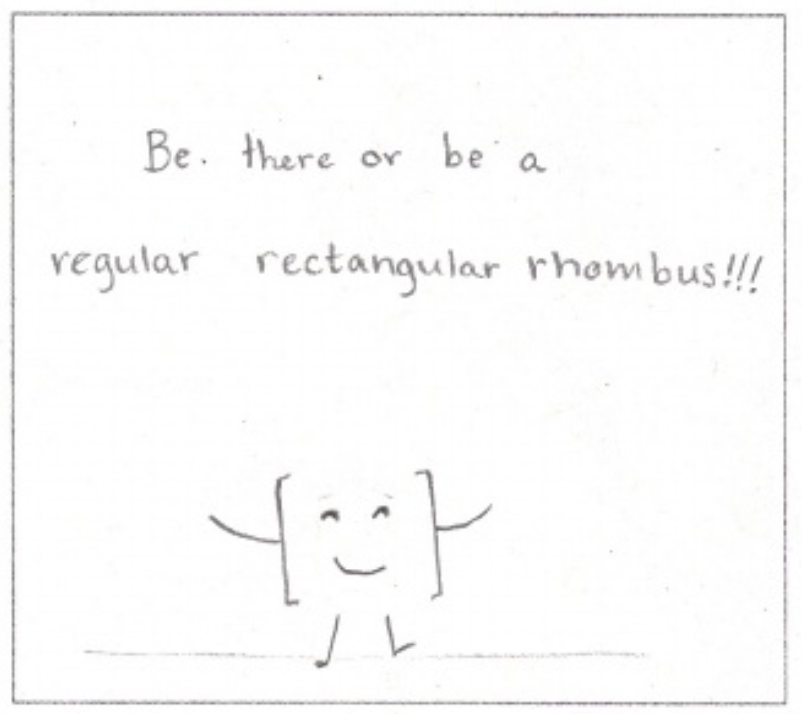 Be. there or be a
regular rectangular rhombus!!!